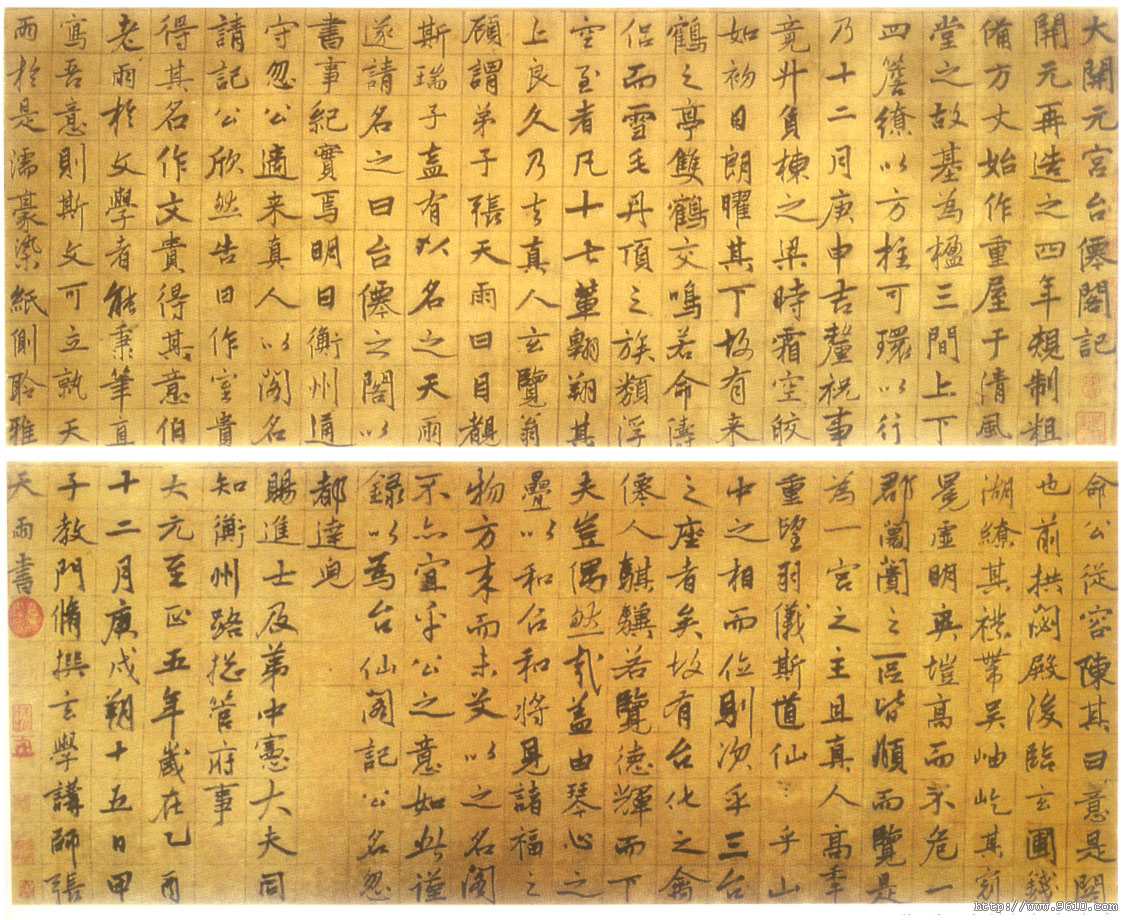 大開元宮台僊閣記
開元再造之四年規制粗
備方丈始作重屋于清風
堂之故基為楹三間上下
四簷繚以方柱可環以行
乃十二月庚申吉釐祝事
竟升負棟之梁時霜空皎
如初日朗曜其下故有来
鶴之亭雙鶴交鳴若命儔
侣而雪毛丹頂之族類浮
空至者凡十七輩翱翔其
上良久乃去真人玄覽翁
顧謂弟子張天雨曰目覩
斯瑞子盍有以名之天雨
遂請名之曰台僊之閣以
書事紀實焉明日衡州通
守忽公適来真人以閣名
請記公欣然告曰作室貴
得其名作文貴得其意伯
老雨於文學者能秉筆直
寫吾意則斯文可立就天
雨於是濡豪染紙側聆雅
命公從容陳其曰意是閣
也前拱閟殿後臨玄圃錢
湖繚其襟帶吴岫屹其前
冕虚明爽塏高而不危一
郡闤闠之區皆頫而覽是
為一宫之主且真人高
重望羽儀斯道仙乎山
中之相而位列次乎三台
之座者矣故有台化之禽
僊人騏驥若覽德輝而下
夫豈偶然哉盖由琴心之
疊以和召和将見諸福之
物方来而未艾以之名閣
不亦宜乎公之意如此谨
録以為台仙閣記公名忽
都達兒
賜進士及第中憲大夫同
知衡州路揔管府事
大元至正五年歲在乙酉
十二月庚戌朔十五日甲
子教門脩撰玄學講師張
天雨書
http://www.9610.com